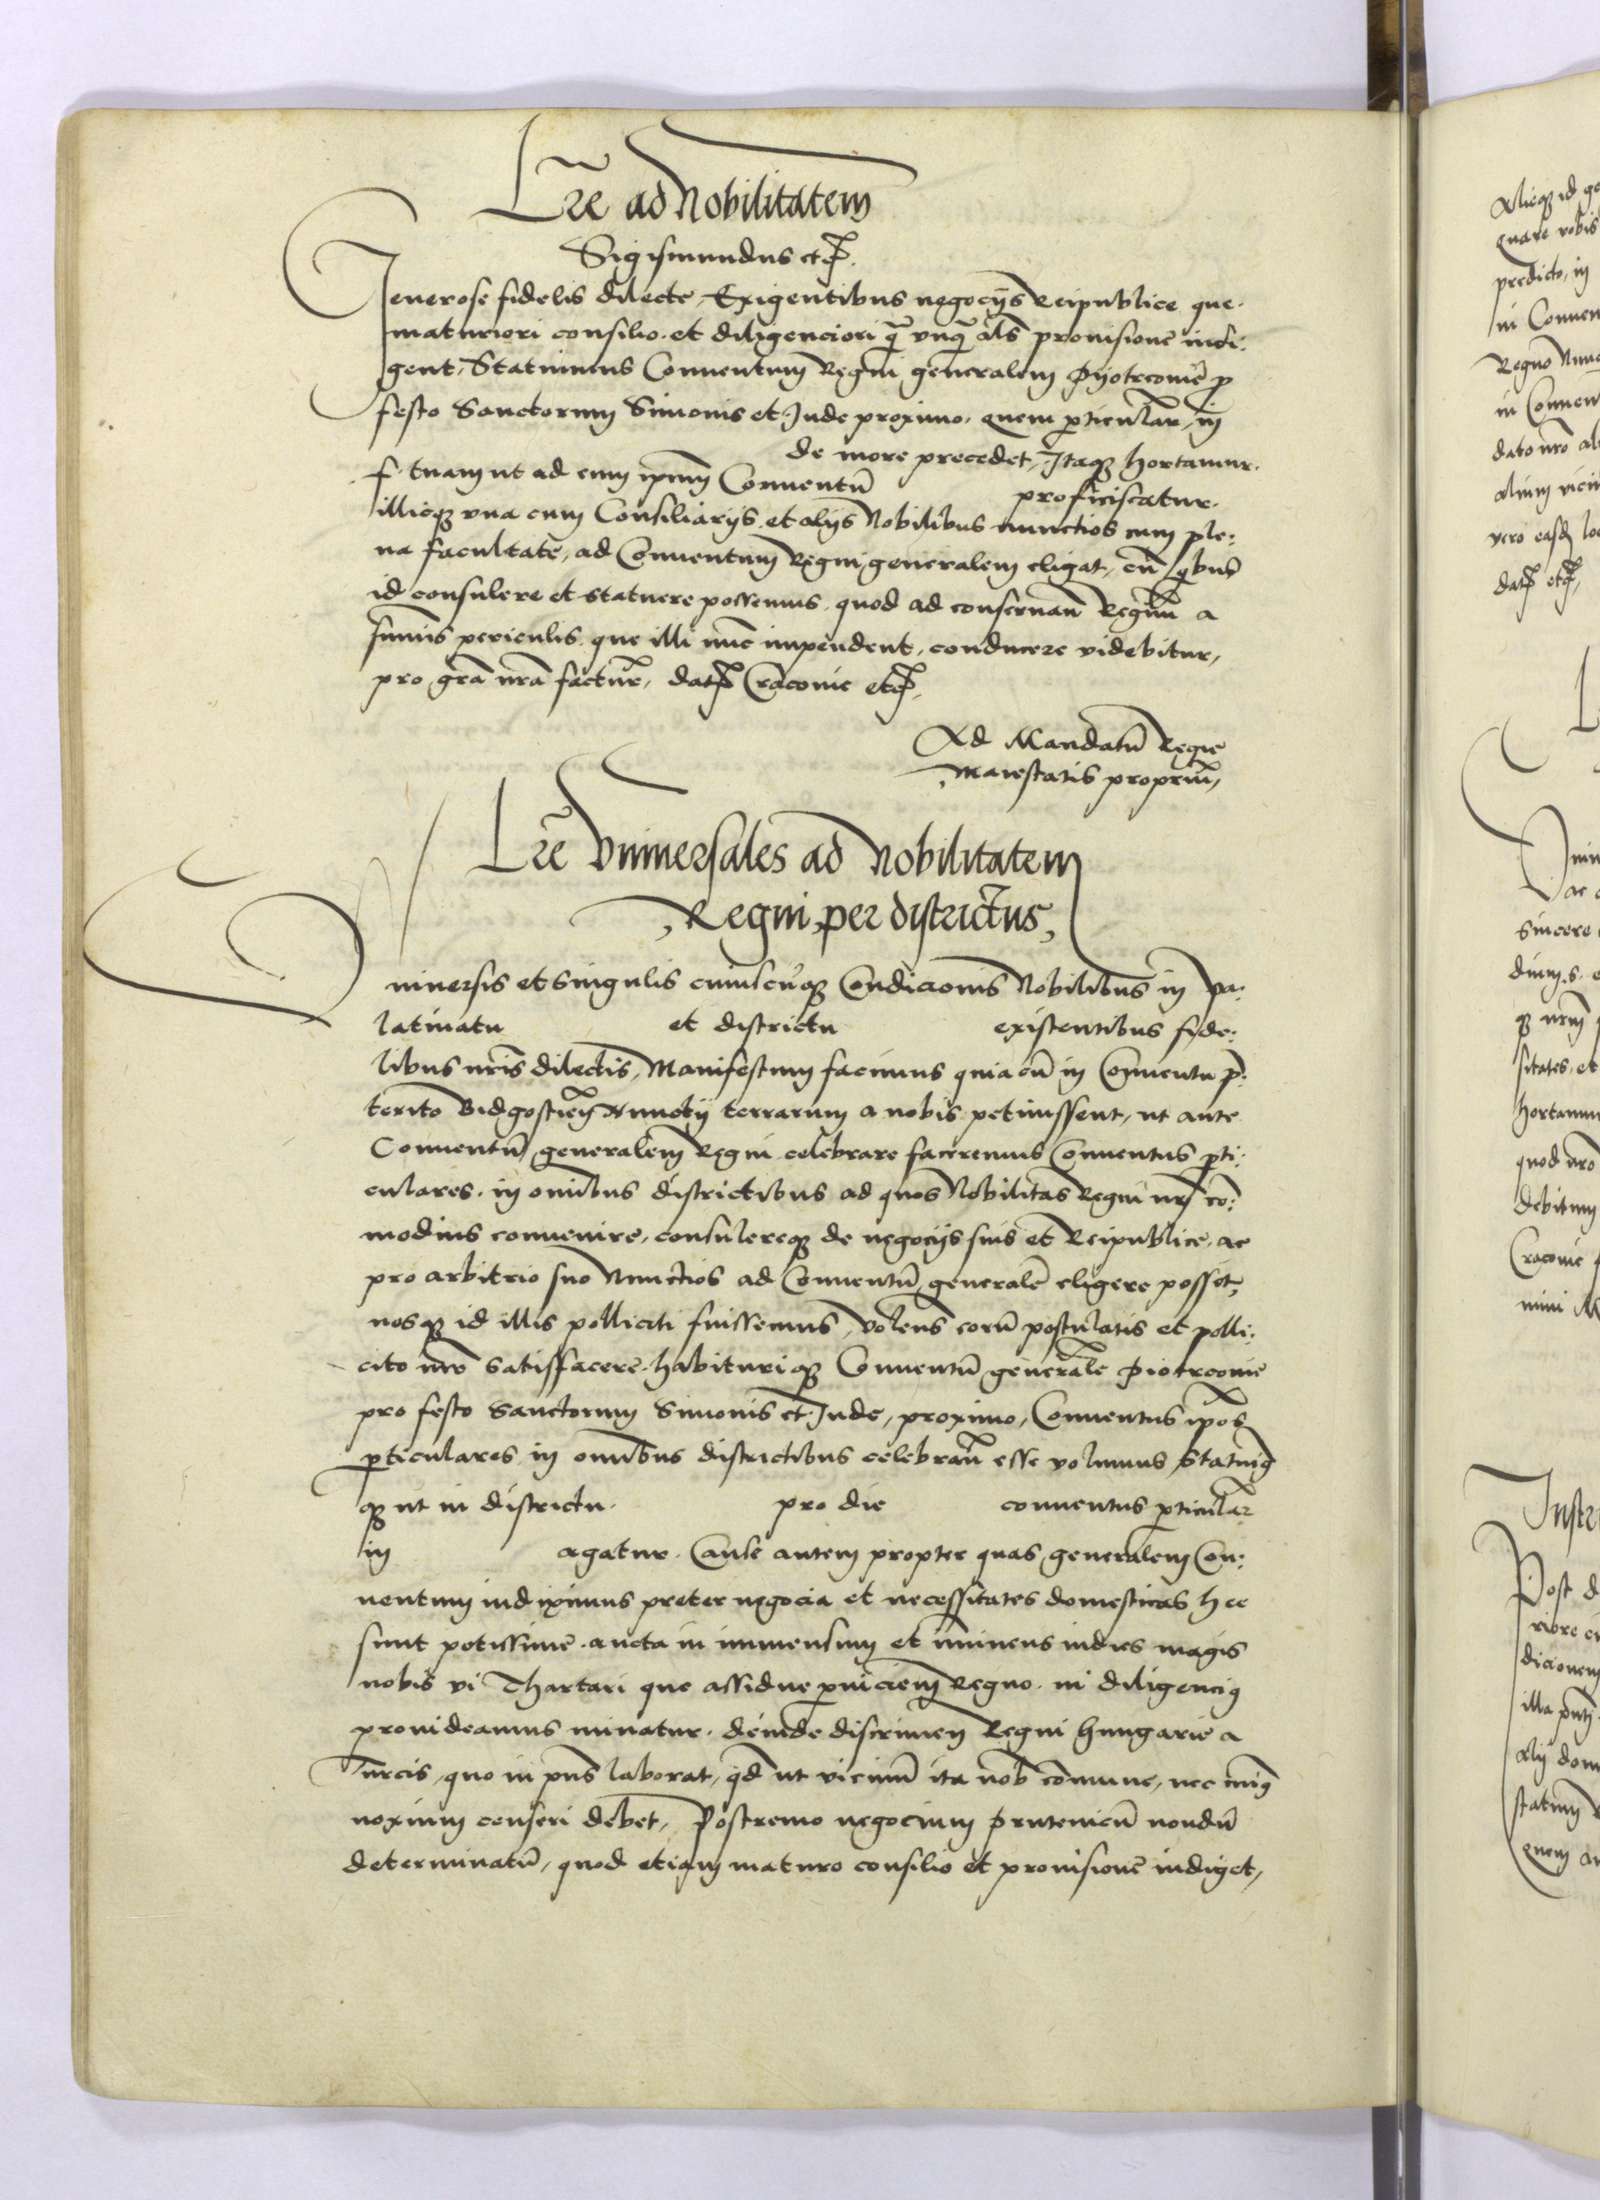 Lr̃e ad Nobilitatem
Sigismundus etc̃.
Generose fidelis dilecte, Exigentibus negocijs Reipublice que
maturiori consilio et diligenciori q̃ vnq̃ als̃ prouisione indi:
gent, Statuimus Conuentum Regni generalem Pyotrcouiẽ ꝓ
festo Sanctorum Simonis et Jude proximo, quem ꝑticular̃ in
de more precedet, Itaqꝫ hortamur
f. tuam ut ad eum ip̃m Conuentũ
proficiscatur
illicqꝫ vna cum Consiliarijs et alijs Nobilibus nunctios cum ple:
na facultate, ad Conuentum Regni generalem eligat, cũ qbus
id consulere et statuere possemus, quod ad conseruañ Regnũ a
sum̃is periculis que illi nũc impendent, conducere videbitur,
pro gr̃a nr̃a factur̃, dat̃ Cracouie etc̃,
Ad Mandatũ Regie
Maiestatis propriũ,
Lr̃e Vniuersales ad Nobilitatem
Regni per districtus,
niuersis et singulis cuiuscũqꝫ Condicionis Nobilibus in Pa:
latinatu et districtu existentibus fide:
libus nr̃is dilectis, Manifestum facimus quia cũ in Conuentu p̃:
terito Bidgostień Nunctij terrarum a nobis petiuissent, ut ante
Conuentũ generalem Regni celebrare faceremus Conuentus ꝑti:
culares in omĩbus districtibus ad quos Nobilitas Regni nrĩ cõ:
modius conuenire, consulereqꝫ de negocijs suis et Reipublice, ac
pro arbitrio suo Nunctios ad Conuentũ generalẽ eligere posset,
nosqꝫ id illis polliciti fuissemus, volens̃ eorũ postulatis et polli:
cito nr̃o satisfacere, habituriqꝫ Conuentũ generalẽ Piotrcouie
pro festo Sanctorum Simonis et Jude, proximo, Conuentus ip̃os
ꝑticulares in omĩbus districtibus celebrañ esse volumus, statuim9
qꝫ ut in districtu pro die conuentus ꝑticular̃
in agatur. Cause autem propter quas generalem Con:
uentum indiximus preter negocia et necessitates domesticas hee
sunt potissimẽ, aucta in immensum et im̃inens indies magis
nobis vi Thartari que assidue ꝑniciem Regno, ni diligencius
prouideamus minatur, deinde discrimen Regni Hungarie a
Turcis, quo in pñs laborat, qd̃ ut vicinũ ita nob̃ com̃une, nec min9
noxium censeri debet, Postremo negocium Prutenicũ nondũ
determinatũ, quod etiam maturo consilio et prouisione indiget,